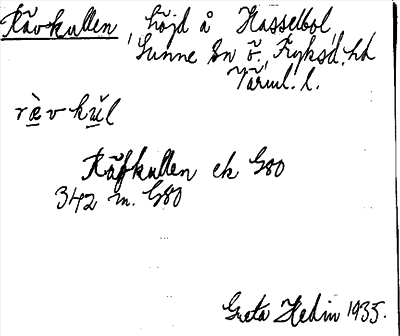 Rävkullen, höjd å Hasselbol,
Sunne sn Ö. Fryksd. hd
Värml. l.
rævkul
Räfkullen ek G80
342 m. G80
Greta Hedin 1935.